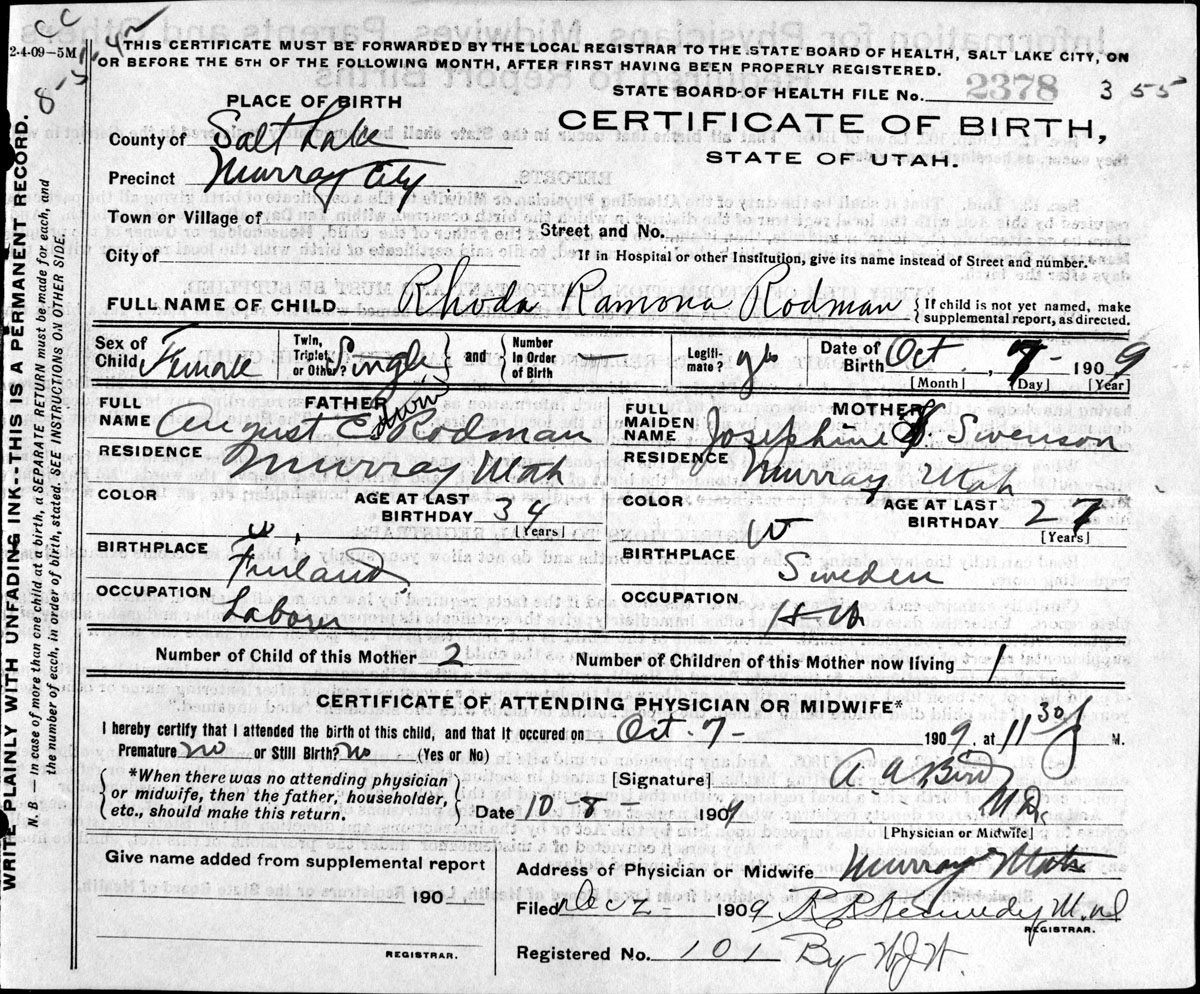 2-4-09-5M
THIS CERTIFICATE MUST BE FORWARDED BY THE LOCAL REGISTRAR TO THE STATE BOARD OF HEALTH, SALT LAKE CITY, ON
OR BEFORE THE 5TH OF THE FOLLOWING MONTH, AFTER FIRST HAVING BEEN PROPERLY REGISTERED.
STATE BOARD OF HEALTH FILE No. 2378 355
PLACE OF BIRTH
CERTIFICATE OF BIRTH,
STATE OF UTAH.
County of Salt Lake
Precinct Murray City
Town or Village of
Street, and No.
City of
If in Hospital or other Institution, give its name instead of Street and number.
FULL NAME OF CHILD Rhoda Ramona Rodman { If child is not yet named, make supplemental report, as directed.
Sex of Child Female Twin, Triplet or Other? Single and Number in Order of Birth - Legitimate? yes Date of Birth Oct. 7- 1909
[Month] [Day] [Year]
FATHER
FULL NAME August E. Rodman
RESIDENCE Murray Utah
COLOR W AGE AT LAST BIRTHDAY 34
[Years]
BIRTHPLACE Finland
OCCUPATION Laborer
MOTHER
FULL MAIDEN NAME Josephine S. Swenson
RESIDENCE Murray Utah
COLOR W AGE AT LAST BIRTHDAY 27
[Years]
BIRTHPLACE Sweden
OCCUPATION H W
Number of Child of this Mother 2 Number of Children of this Mother now living 1
CERTIFICATE OF ATTENDING PHYSICIAN OR MIDWIFE*
I hereby certify that I attended the birth of this child, and that it occured on Oct-7- 1909, at 11 30 P M.
Premature? no or Still Birth? no (Yes or No)
*When there was no attending physician
or midwife, then the father, householder,
etc., should make this return.
[Signature] A. A. Bird M.D.
Date 10-8- 1909
[Physician or Midwife]
Give name added from supplemental report
190
REGISTRAR.
Address of Physician or Midwife Murray Utah
Filed Dec 2- 1909 R R Kennedy M.D
REGISTRAR.
Registered No. 101 By W.J.W.
WRITE PLAINLY WITH UNFADING INK--THIS IS A PERMANENT RECORD.
N. B. — In case of more than one child at a birth, a SEPARATE RETURN must be made for each, and
the number of each, in order of birth, stated. SEE INSTRUCTIONS ON OTHER SIDE.